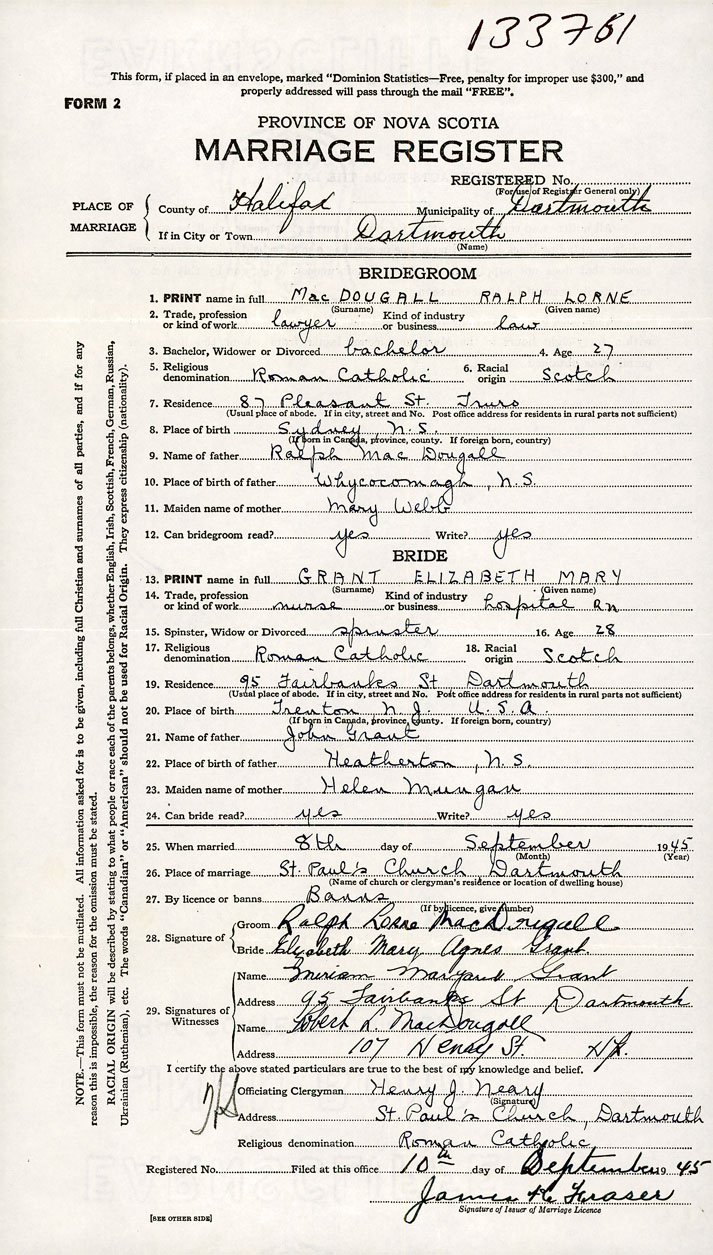 133761
This form, if placed in an envelope, marked "Dominion Statistics—Free, penalty for improper use $300," and
properly addressed will pass through the mail "FREE".
FORM 2
PROVINCE OF NOVA SCOTIA
MARRIAGE REGISTER
REGISTERED No.
(For use of Registrar General only)
PLACE OF MARRIAGE
County of Halifax Municipality of Dartmouth
If in City or Town Dartmouth
(Name)
BRIDEGROOM
1. PRINT name in full MacDOUGALL RALPH LORNE
(Surname) (Given name)
2. Trade, profession or kind of work lawyer Kind of industry or business law
3. Bachelor, Widower or Divorced bachelor 4. Age 27
5. Religious denomination Roman Catholic 6. Racial origin Scotch
7. Residence 87 Pleasant St. Truro
(Usual place of abode. If in city, street and No. Post office address for residents in rural parts not sufficient)
8. Place of birth Sydney, N.S.
(If born in Canada, province, county. If foreign born, country)
9. Name of father Ralph MacDougall
10. Place of birth of father Whycocomagh, N.S.
11. Maiden name of mother Mary Webb
12. Can bridegroom read? yes Write? yes
BRIDE
13. PRINT name in full GRANT ELIZABETH MARY
(Surname) (Given name)
14. Trade, profession or kind of work nurse Kind of industry or business hospital RN
15. Spinster, Widow or Divorced spinster 16. Age 28
17. Religious denomination Roman Catholic 18. Racial origin Scotch
19. Residence 95 Fairbanks St Dartmouth
(Usual place of abode. If in city, street and No. Post office address for residents in rural parts not sufficient)
20. Place of birth Trenton N.J. U.S.A.
(If born in Canada, province, county. If foreign born, country)
21. Name of father John Grant
22. Place of birth of father Heatherton, N.S.
23. Maiden name of mother Helen Mungan
24. Can bride read? yes Write? yes
25. When married 8th day of September 1945
(Month) (Year)
26. Place of marriage St. Paul's Church, Dartmouth
(Name of church or clergyman's residence or location of dwelling house)
27. By licence or banns Banns
(If by licence, give number)
28. Signature of
Groom Ralph Lorne MacDougall
Bride Elizabeth Mary Agnes Grant.
29. Signatures of Witnesses
Name Miriam Margaret Grant
Address 95 Fairbanks St Dartmouth
Name Robert L. MacDougall
Address 107 Henry St. Hfx.
I certify the above stated particulars are true to the best of my knowledge and belief.
Officiating Clergyman Henry J. Neary
(Signature)
Address St. Paul's Church, Dartmouth
Religious denomination Roman Catholic
Registered No. Filed at this office 10th day of September 1945
James Fraser
Signature of Issuer of Marriage Licence
[SEE OTHER SIDE]
NOTE.—This form must not be mutilated. All information asked for is to be given, including full Christian and surnames of all parties, and if for any
reason this is impossible, the reason for the emission must be stated.
RACIAL ORIGIN will be described by stating to what people or race each of the parents belongs, whether English, Irish, Scottish, French, German, Russian,
Ukrainian (Ruthenian), etc. The words "Canadian" or "American" should not be used for Racial Origin. They express citizenship (nationality).